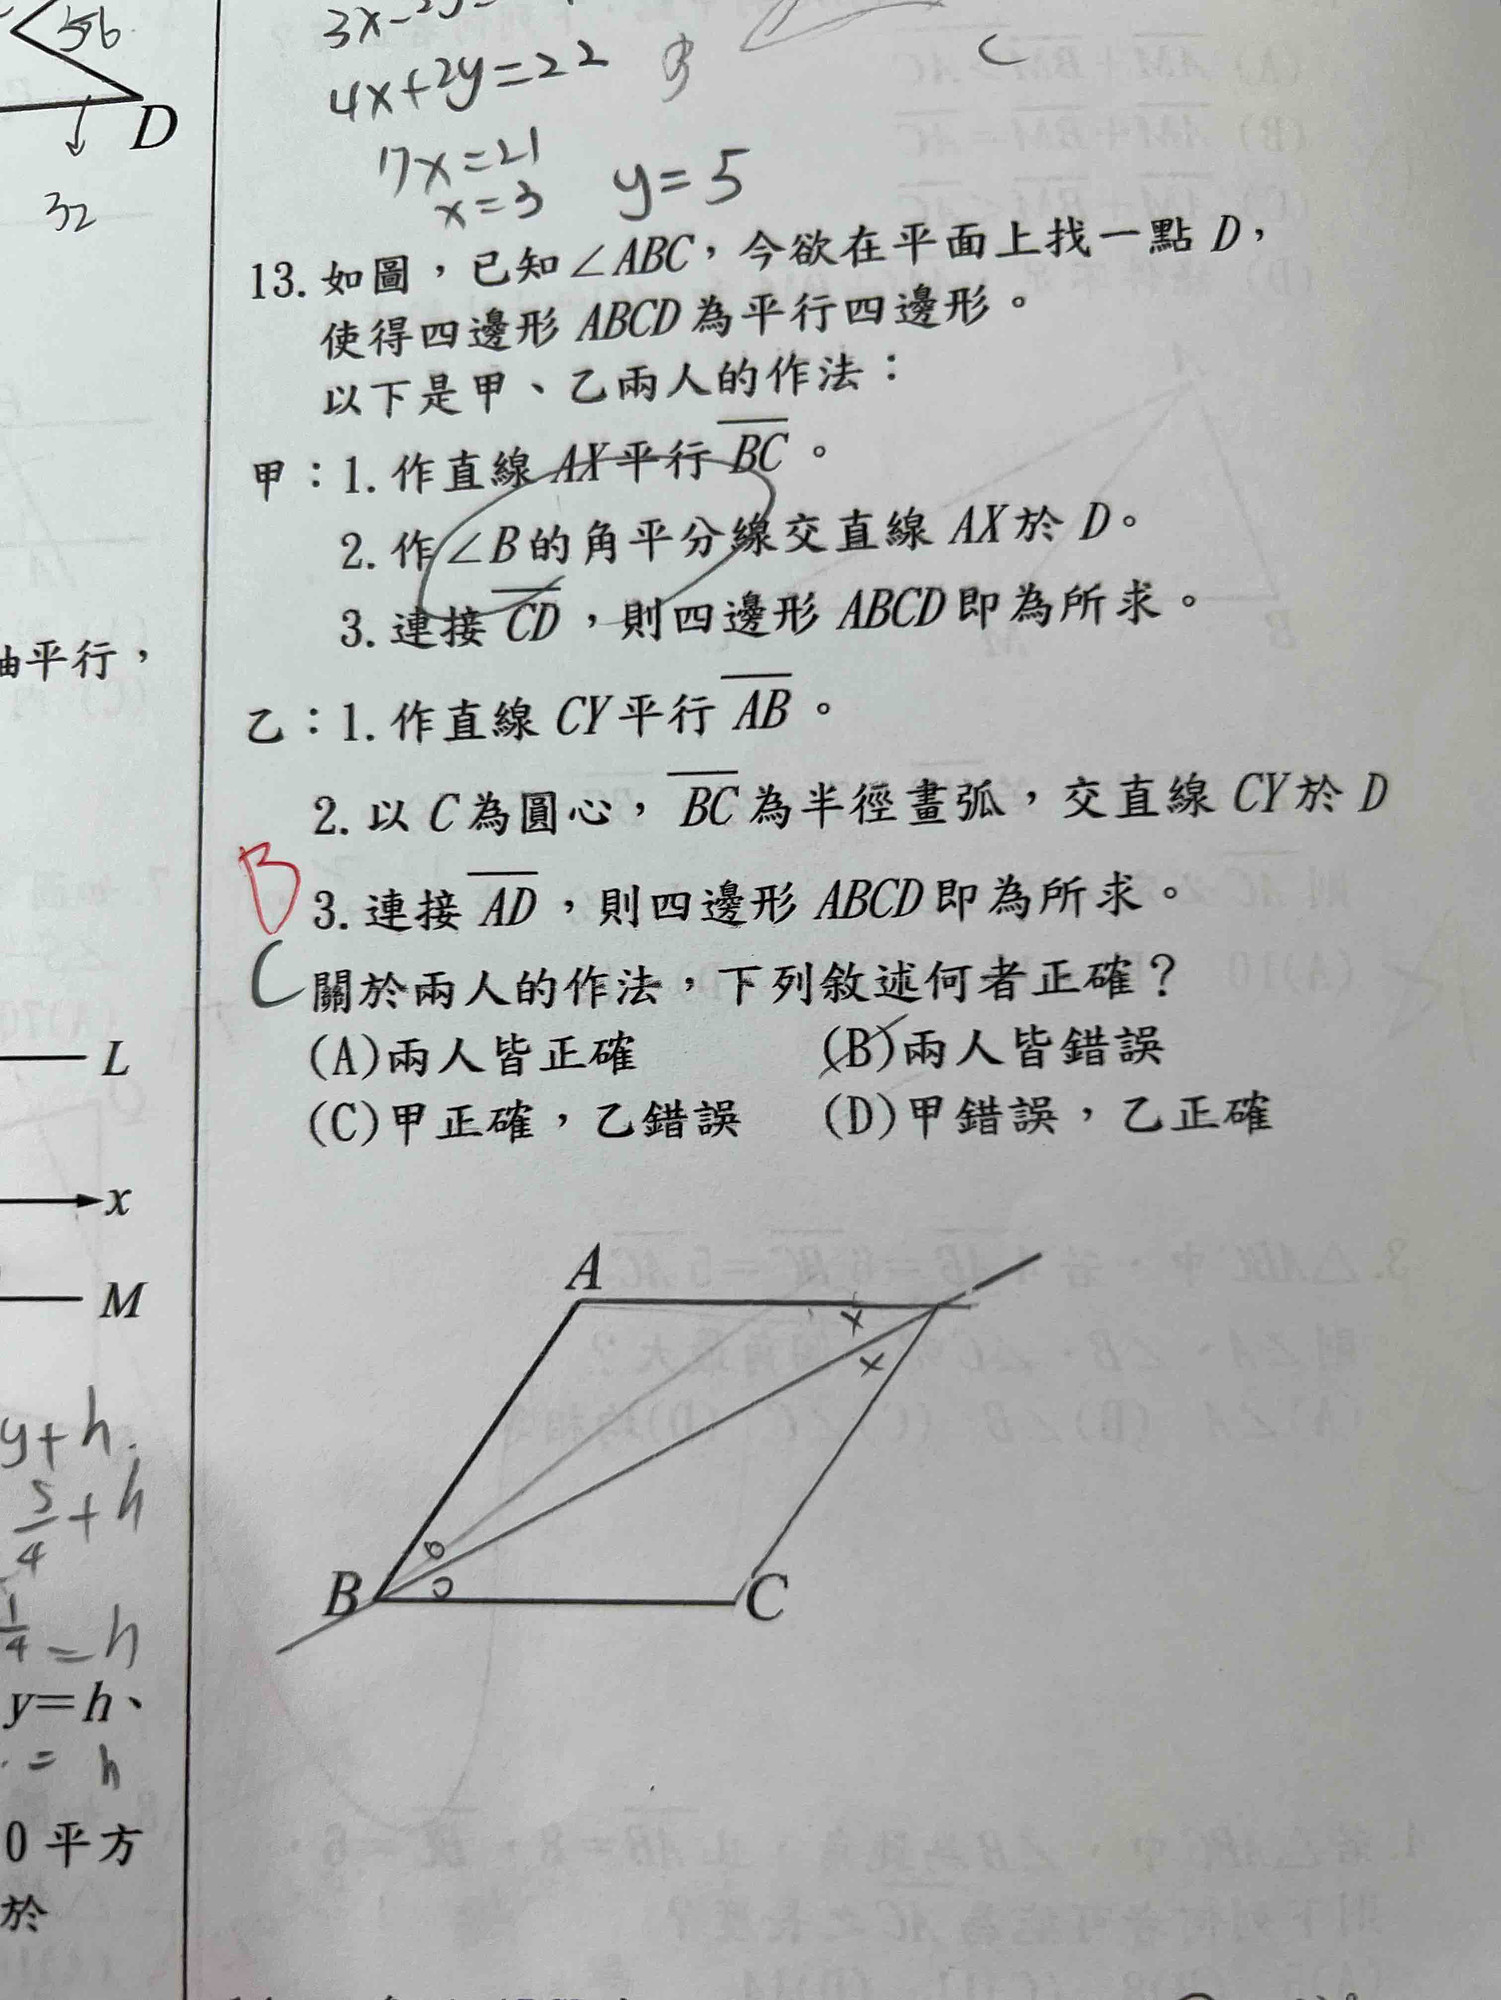 56
D
32
4x+2y=22
7x=21
x=3 y=5
13. 如圖，已知∠ABC，今欲在平面上找一點 D，
使得四邊形 ABCD 為平行四邊形。
以下是甲、乙兩人的作法：
甲：1. 作直線 AX 平行 BC。
2. 作∠B的角平分線交直線 AX 於 D。
3. 連接 CD，則四邊形 ABCD 即為所求。
乙：1. 作直線 CY 平行 AB。
2. 以 C 為圓心，BC 為半徑畫弧，交直線 CY 於 D
B
3. 連接 AD，則四邊形 ABCD 即為所求。
C
關於兩人的作法，下列敘述何者正確？
(A)兩人皆正確 (B)兩人皆錯誤
(C)甲正確，乙錯誤 (D)甲錯誤，乙正確
A
B
C
平行，
L
x
M
y+h
5/4+h
1/4=h
y=h、
= h
0 平方
於